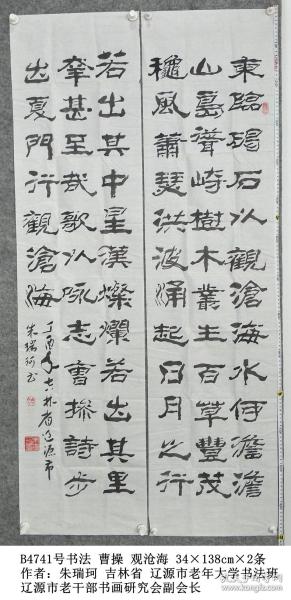 東臨碣石以觀滄海水何澹澹
山島聳峙樹木叢生百草豐茂
穐風蕭瑟洪波涌起日月之行
若出其中星漢燦爛若出其里
幸甚至哉歌以咏志曹操詩步
出夏門行觀滄海
丁酉年吉林省辽源市
朱瑞珂书
B4741号书法 曹操 观沧海 34×138cm×2条
作者：朱瑞珂 吉林省 辽源市老年大学书法班
辽源市老干部书画研究会副会长